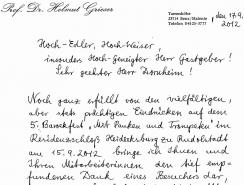 Prof. Dr. Helmut Grieser
Tannenhöhe
23714 Benz/Malente
Telefon 04523-3777
, den 17.9.
2012
Hoch-Edler, Hoch-Weiser,
insonders Hoch-Geneigter Herr Gastgeber!
Sehr geehrter Herr Bornheim!
Noch ganz erfüllt von den vielfältigen,
aber stets prächtigen Eindrücken auf dem
5. Barockfest „Mit Pauken und Trompeten" im
Residenzschloß Heidecksburg zu Rudolstadt
am 15.9.2012 bringe ich Ihnen und
Ihren Mitarbeiterinnen den tief emp-
fundenen Dank eines Besuchers dar,